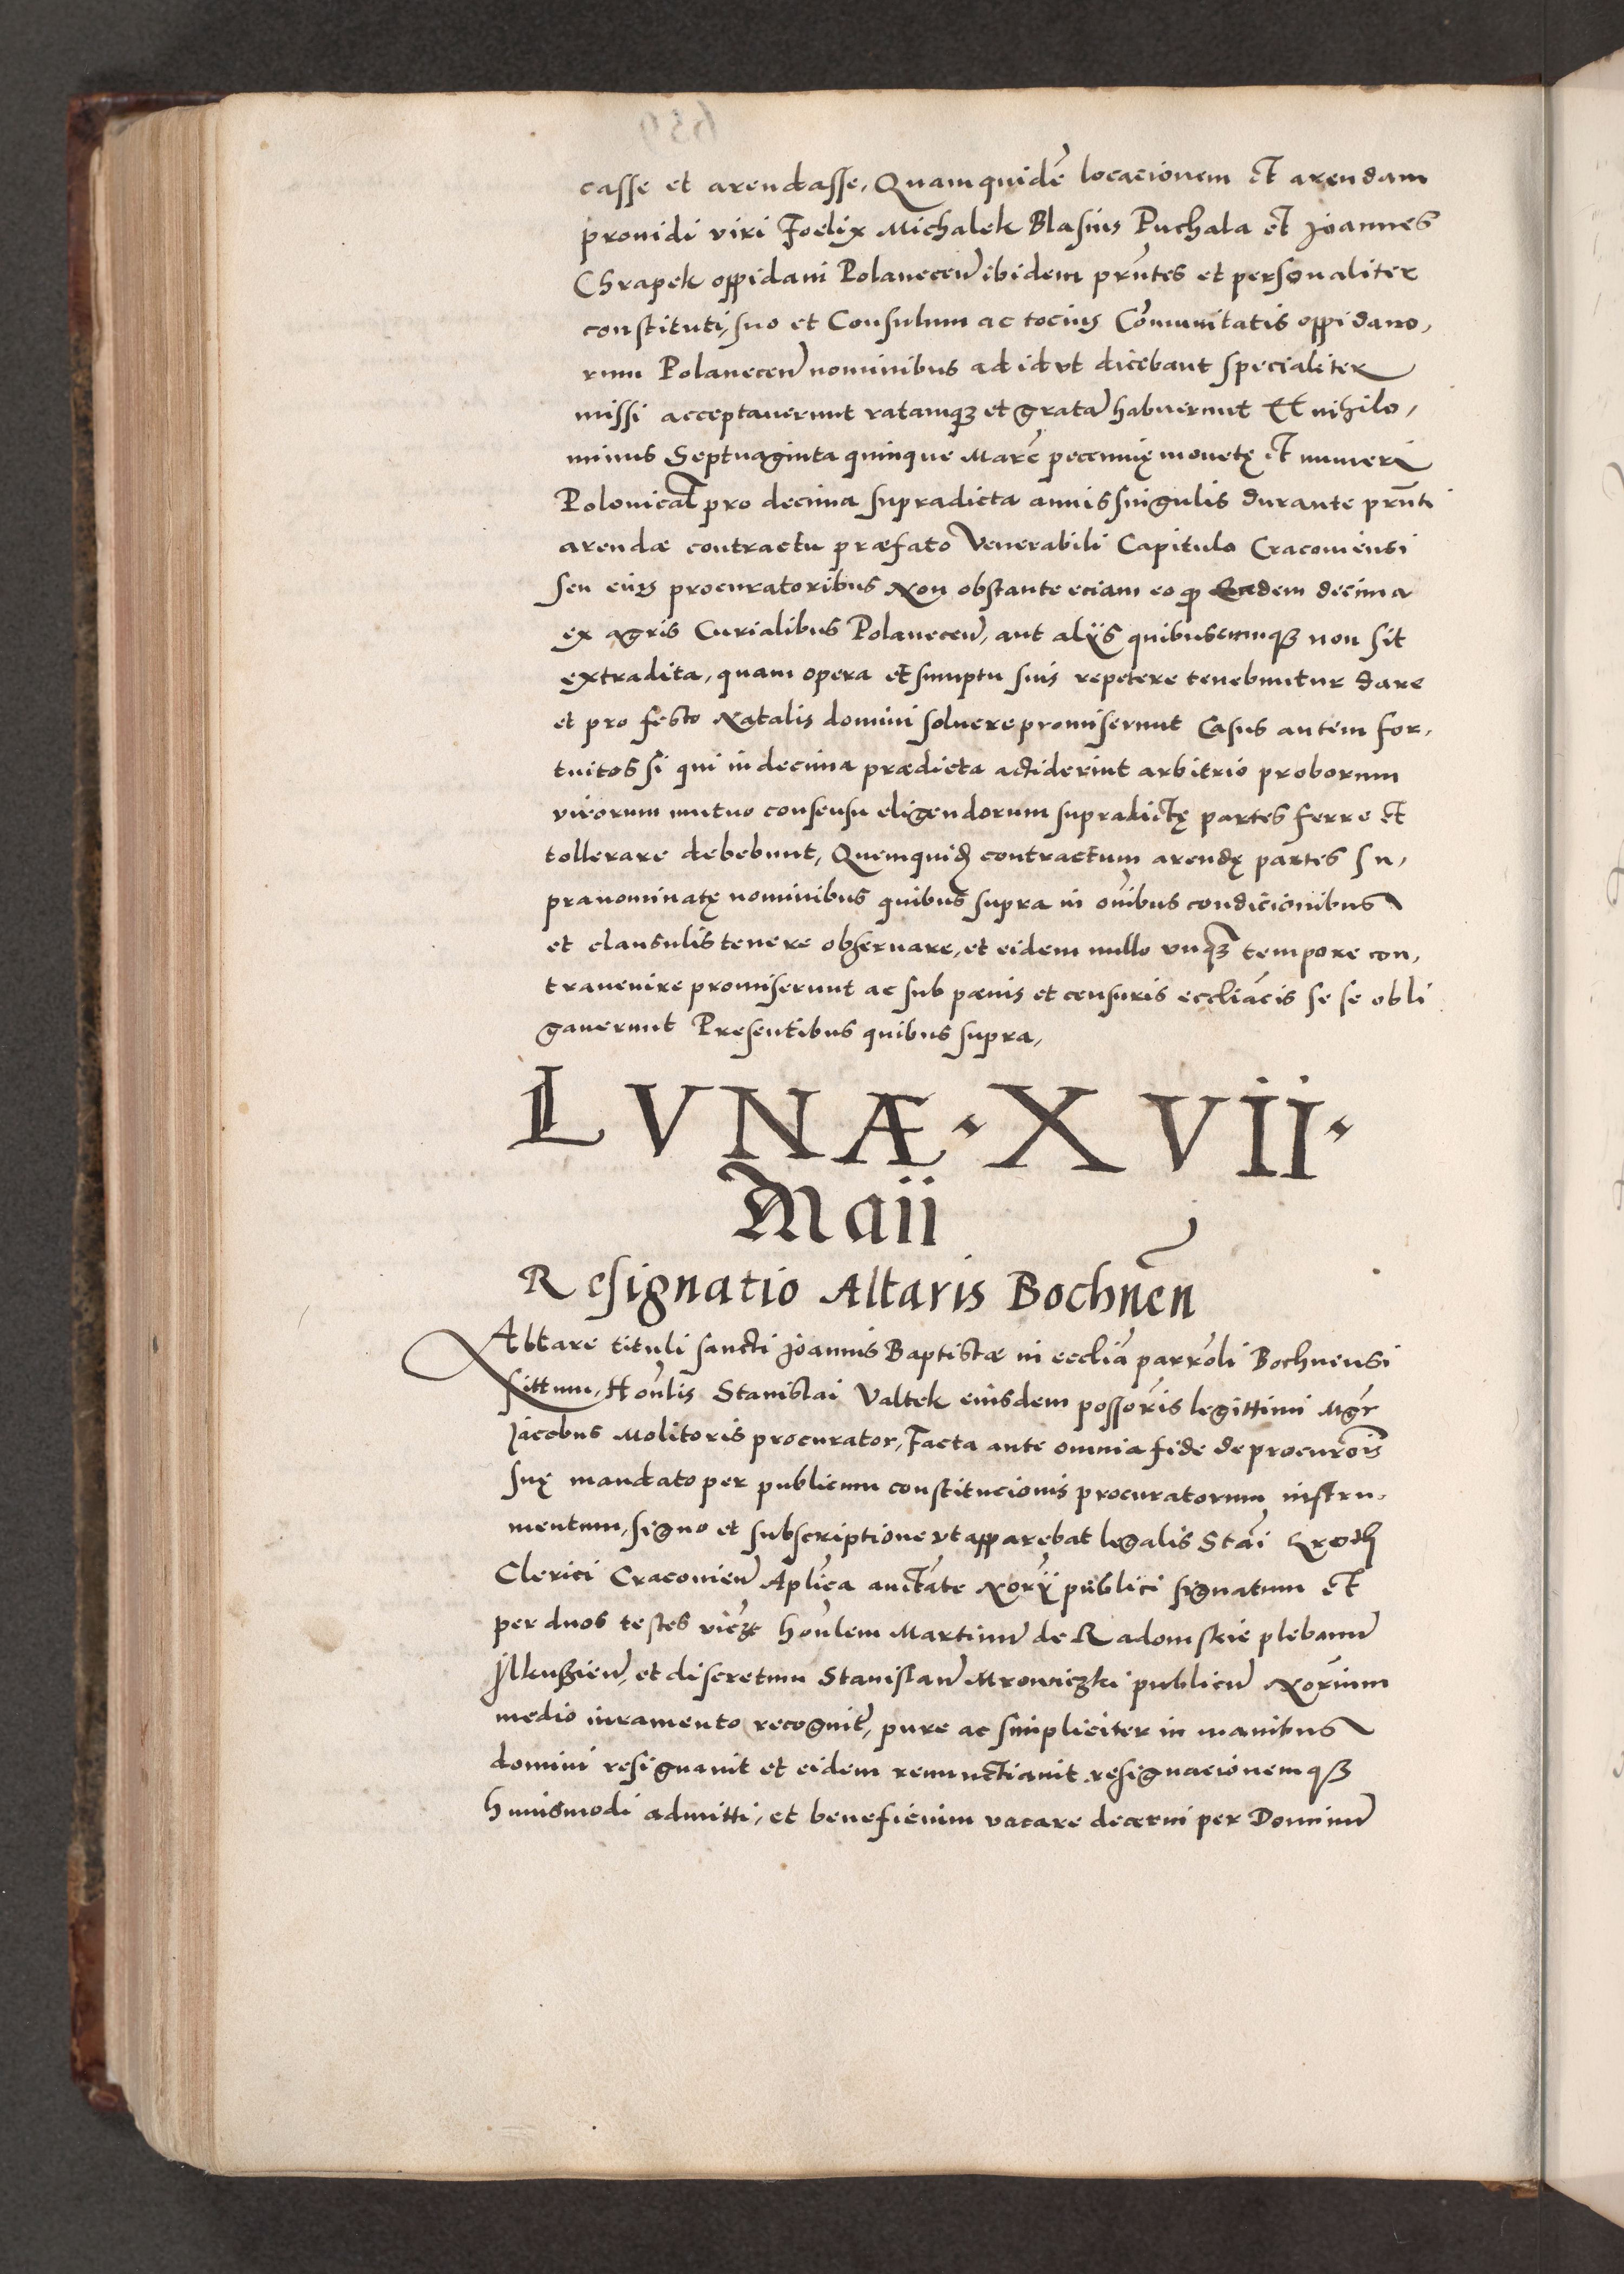 casse et arendasse, Quamquidē locacionem et arendam
prouidi viri Foelix Michalek Blasius Puchala et Joannes
Chrapek oppidani Polanecen̄ ibidem pn̄tes et personaliter
constituti, suo et Consulum ac tocius Cōmunitatis oppidano,
rum Polanecen̄ nominibus ad id vt dicebant specialiter
missi acceptauerunt ratamqꝫ et gratā habuerunt Et nihilo,
minus Septuaginta quinque Marc̄ pecunię monetę et numeri
Polonical̄ pro decima supradicta annis singulis durante prn̄ti
arendæ contractu præfato Venerabili Capitulo Cracouiensi
seu eius procuratoribus Non obstante eciam eo ꝙ Eadem decima
ex agris Curialibus Polanecen̄, aut alijs quibuscumqꝫ non sit
extradita, quam opera et sumptu suis repetere tenebuntur dare
et pro festo Natalis domini soluere promiserunt Casus autem for,
tuitos si qui in decima prædicta acciderint arbitrio proborum
virorum mutuo consensu eligendorum supradictę partes ferre et
tollerare debebunt, Quemquid̄ contractum arendę partes su,
pranominatę nominibus quibus supra in oībus condicionibus
et clausulis tenere obseruare, et eidem nullo vnqꝫ tempore con,
trauenire promiserunt ac sub pænis et censuris eccliācis se se obli
gauerunt Presentibus quibus supra,
LVNÆ · XVII ·
Maii
Resignatio Altaris Bochnen̄
Altare tituli sancti Joannis Baptistæ in eccliā parrōli Bochnensi
sittum, Hon̄lis Stanislai Valtek eiusdem possōris legittimi Mgr̄
Jacobus Molitoris procurator, Facta ante omnia fide de procurōis
suę mandato per publicum constitucionis procuratorum instru,
mentum, signo et subscriptione vt apparebat legalis Stāi
Clerici Cracouien̄ Aplica auctāte Norij publici signatum et
per duos testes vicꝫ hon̄lem Martinū de Radomskie plebanū
Ilkusien̄, et discretum Stanislaū Mrowiczki publicū Norium
medio iuramento recognit̄, pure ac simpliciter in manibus
domini resignauit et eidem renunctiauit resignacionemqꝫ
huiusmodi admitti, et beneficium vacare decerni per Dominū